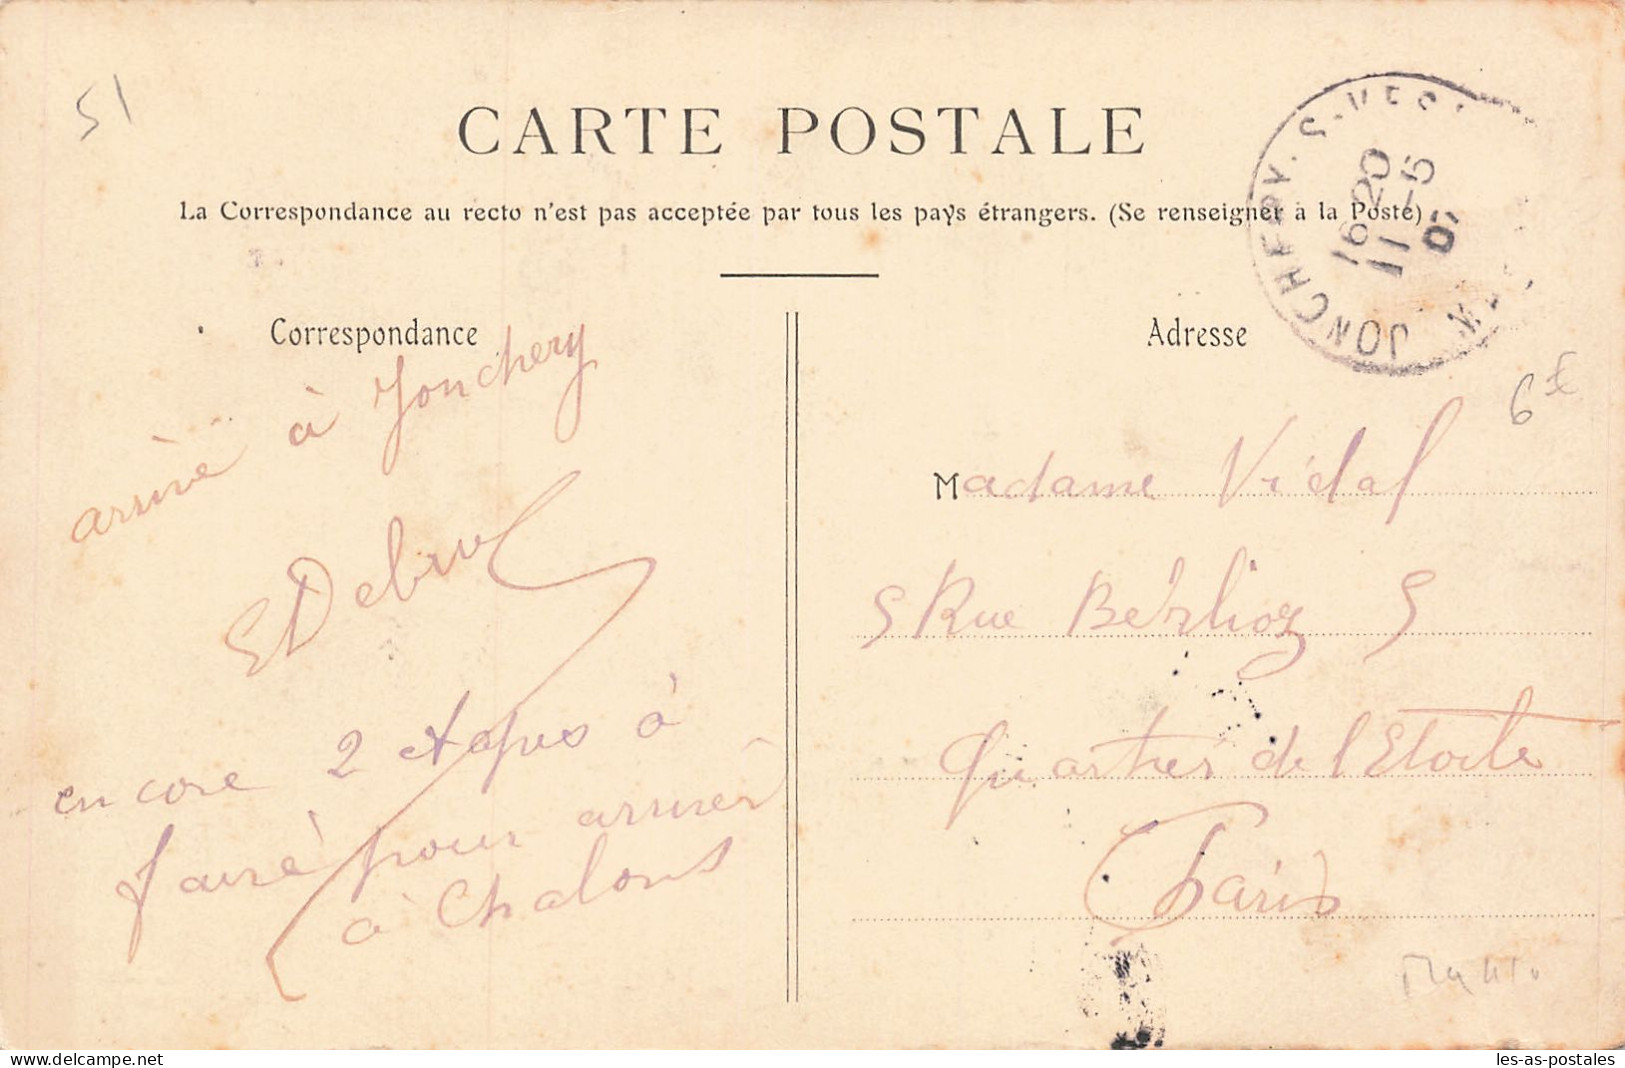 51
CARTE POSTALE
La Correspondance au recto n'est pas acceptée par tous les pays étrangers. (Se renseigner à la Poste)
JONCHERY-S-VESLE
16 20
11 -5
07
Correspondance
arrivé à Jonchery
encore 2 étapes à
faire pour arriver
à Chalons
Adresse
6€
Madame Vidal
5 Rue Bérlioz 5
Quartier de l'Etoile
Paris
delcampe.net
les-as-postales